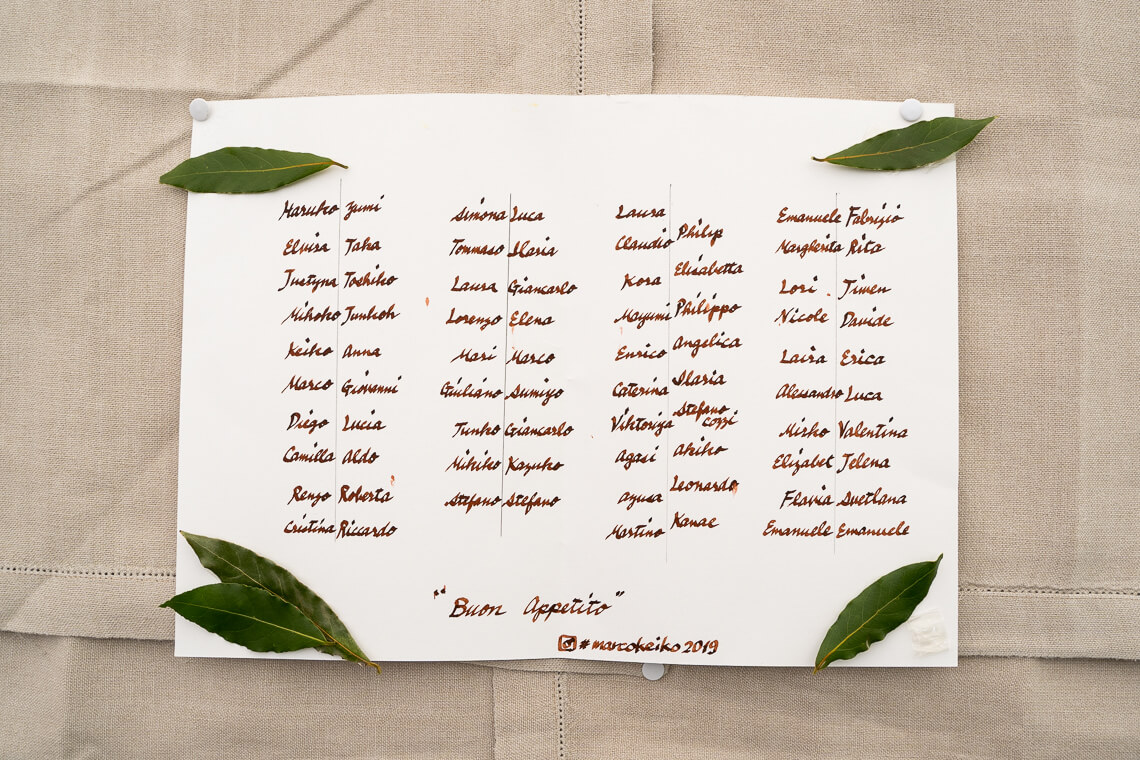 Haruko Zumi
Elvira Taka
Justyna Toshiko
Mihoko Junkoh
Keiko Anna
Marco Giovanni
Diego Lucia
Camilla Aldo
Renzo Roberta
Cristina Riccardo
Simona Luca
Tommaso Ilaria
Laura Giancarlo
Lorenzo Elena
Mari Marco
Giuliano Sumiyo
Junko Giancarlo
Mihiko Kazuko
Stefano Stefano
Laura
Claudio Philip
Kora Elisabetta
Mayumi Philippo
Enrico Angelica
Caterina Ilaria
Viktoriya Stefano Cozzi
Agasi Akiko
Ayusa Leonardo
Martino Kanae
Emanuele Fabrizio
Margherita Rita
Lori Jiwen
Nicole Davide
Laira Erica
Alessandro Luca
Mirko Valentina
Elizabet Jelena
Flavia Svetlana
Emanuele Emanuele
"Buon Appetito"
#marcokeiko2019